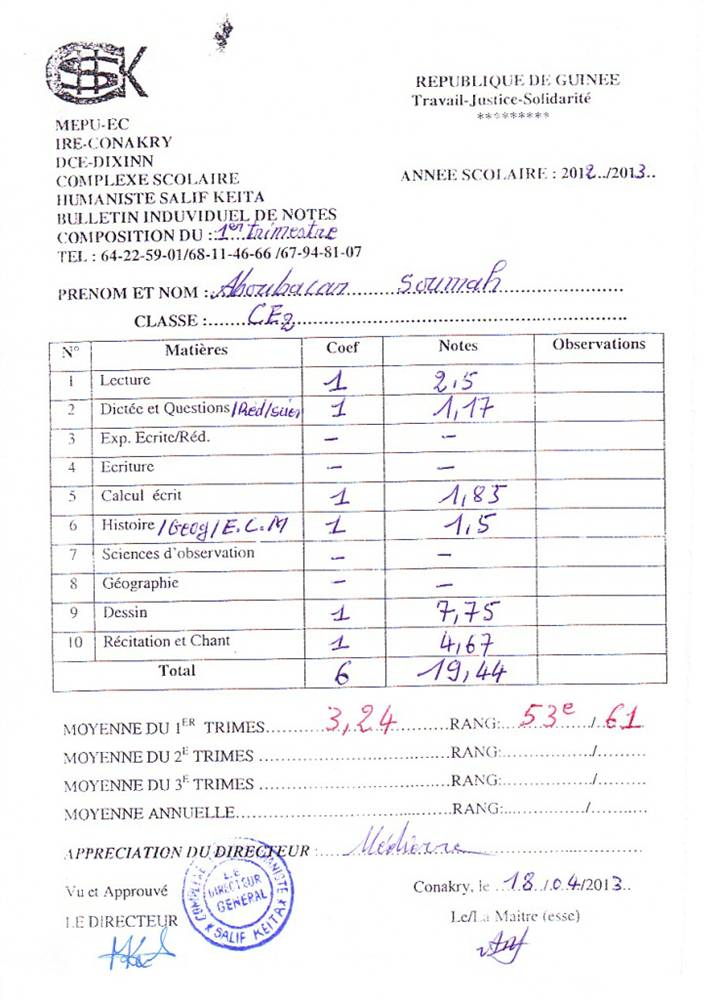 HSSK
REPUBLIQUE DE GUINEE
Travail-Justice-Solidarité
*********
MEPU-EC
IRE-CONAKRY
DCE-DIXINN
COMPLEXE SCOLAIRE
HUMANISTE SALIF KEITA
BULLETIN INDUVIDUEL DE NOTES
COMPOSITION DU : 1er trimestre
TEL : 64-22-59-01/68-11-46-66 /67-94-81-07
ANNEE SCOLAIRE : 2012../2013..
PRENOM ET NOM : Aboubacar Soumah
CLASSE : CE2
N° Matières Coef Notes Observations
1 Lecture 1 2,5
2 Dictée et Questions /Réd/ 1 1,17
3 Exp. Ecrite/Réd. – –
4 Ecriture – –
5 Calcul écrit 1 1,83
6 Histoire /Géog/E.C.M 1 1,5
7 Sciences d'observation – –
8 Géographie – –
9 Dessin 1 7,75
10 Récitation et Chant 1 4,67
Total 6 19,44
MOYENNE DU 1ER TRIMES 3,24 RANG: 53e / 61
MOYENNE DU 2E TRIMES RANG: /
MOYENNE DU 3E TRIMES RANG: /
MOYENNE ANNUELLE RANG: /
APPRECIATION DU DIRECTEUR : Médiocre
Vu et Approuvé
LE DIRECTEUR
COMPLEXE HUMANISTE
LE
DIRECTEUR
GENERAL
* SALIF KEITA *
Conakry, le 18/04/2013
Le/La Maitre (esse)